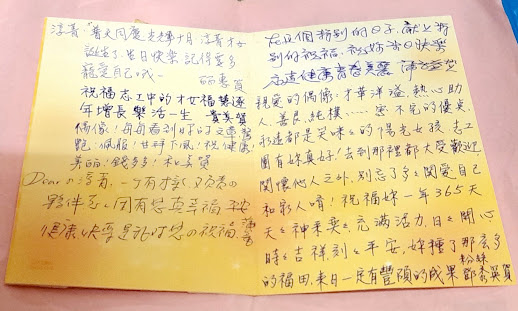 淳青
普天同慶
十月淳青才女
誕生了.生日快樂 記得要多
寵愛自己哦~
麗惠賀
祝福志工中的才女福慧逐
年增長樂活一生
賀
偶像!每每看到好的文章驚
艷!佩服!甘拜下風!祝健康!
美麗!錢多多!
Dearの淳青,一丁有才
夥伴志工團有您真幸福平安
健康快樂是我對您の祝福
在這個特別的日子,獻上特
別的祝福,祝妳生日快樂
永遠健康青春美麗
親愛的偶像:才華洋溢,熱心助
人、善良、純樸……寫不完的優點,
永遠都是笑咪咪的陽光女孩。志工
團有妳真好!去到那裡都大受歡迎,
關懷他人之外,別忘了多多關愛自己
和家人唷!祝福妳一年365天
天天神采奕奕、充滿活力,日日開心
時時吉祥刻刻平安,妳種了那麼多
的福田,來日一定有豐碩的成果
粉絲
鄧秀英賀